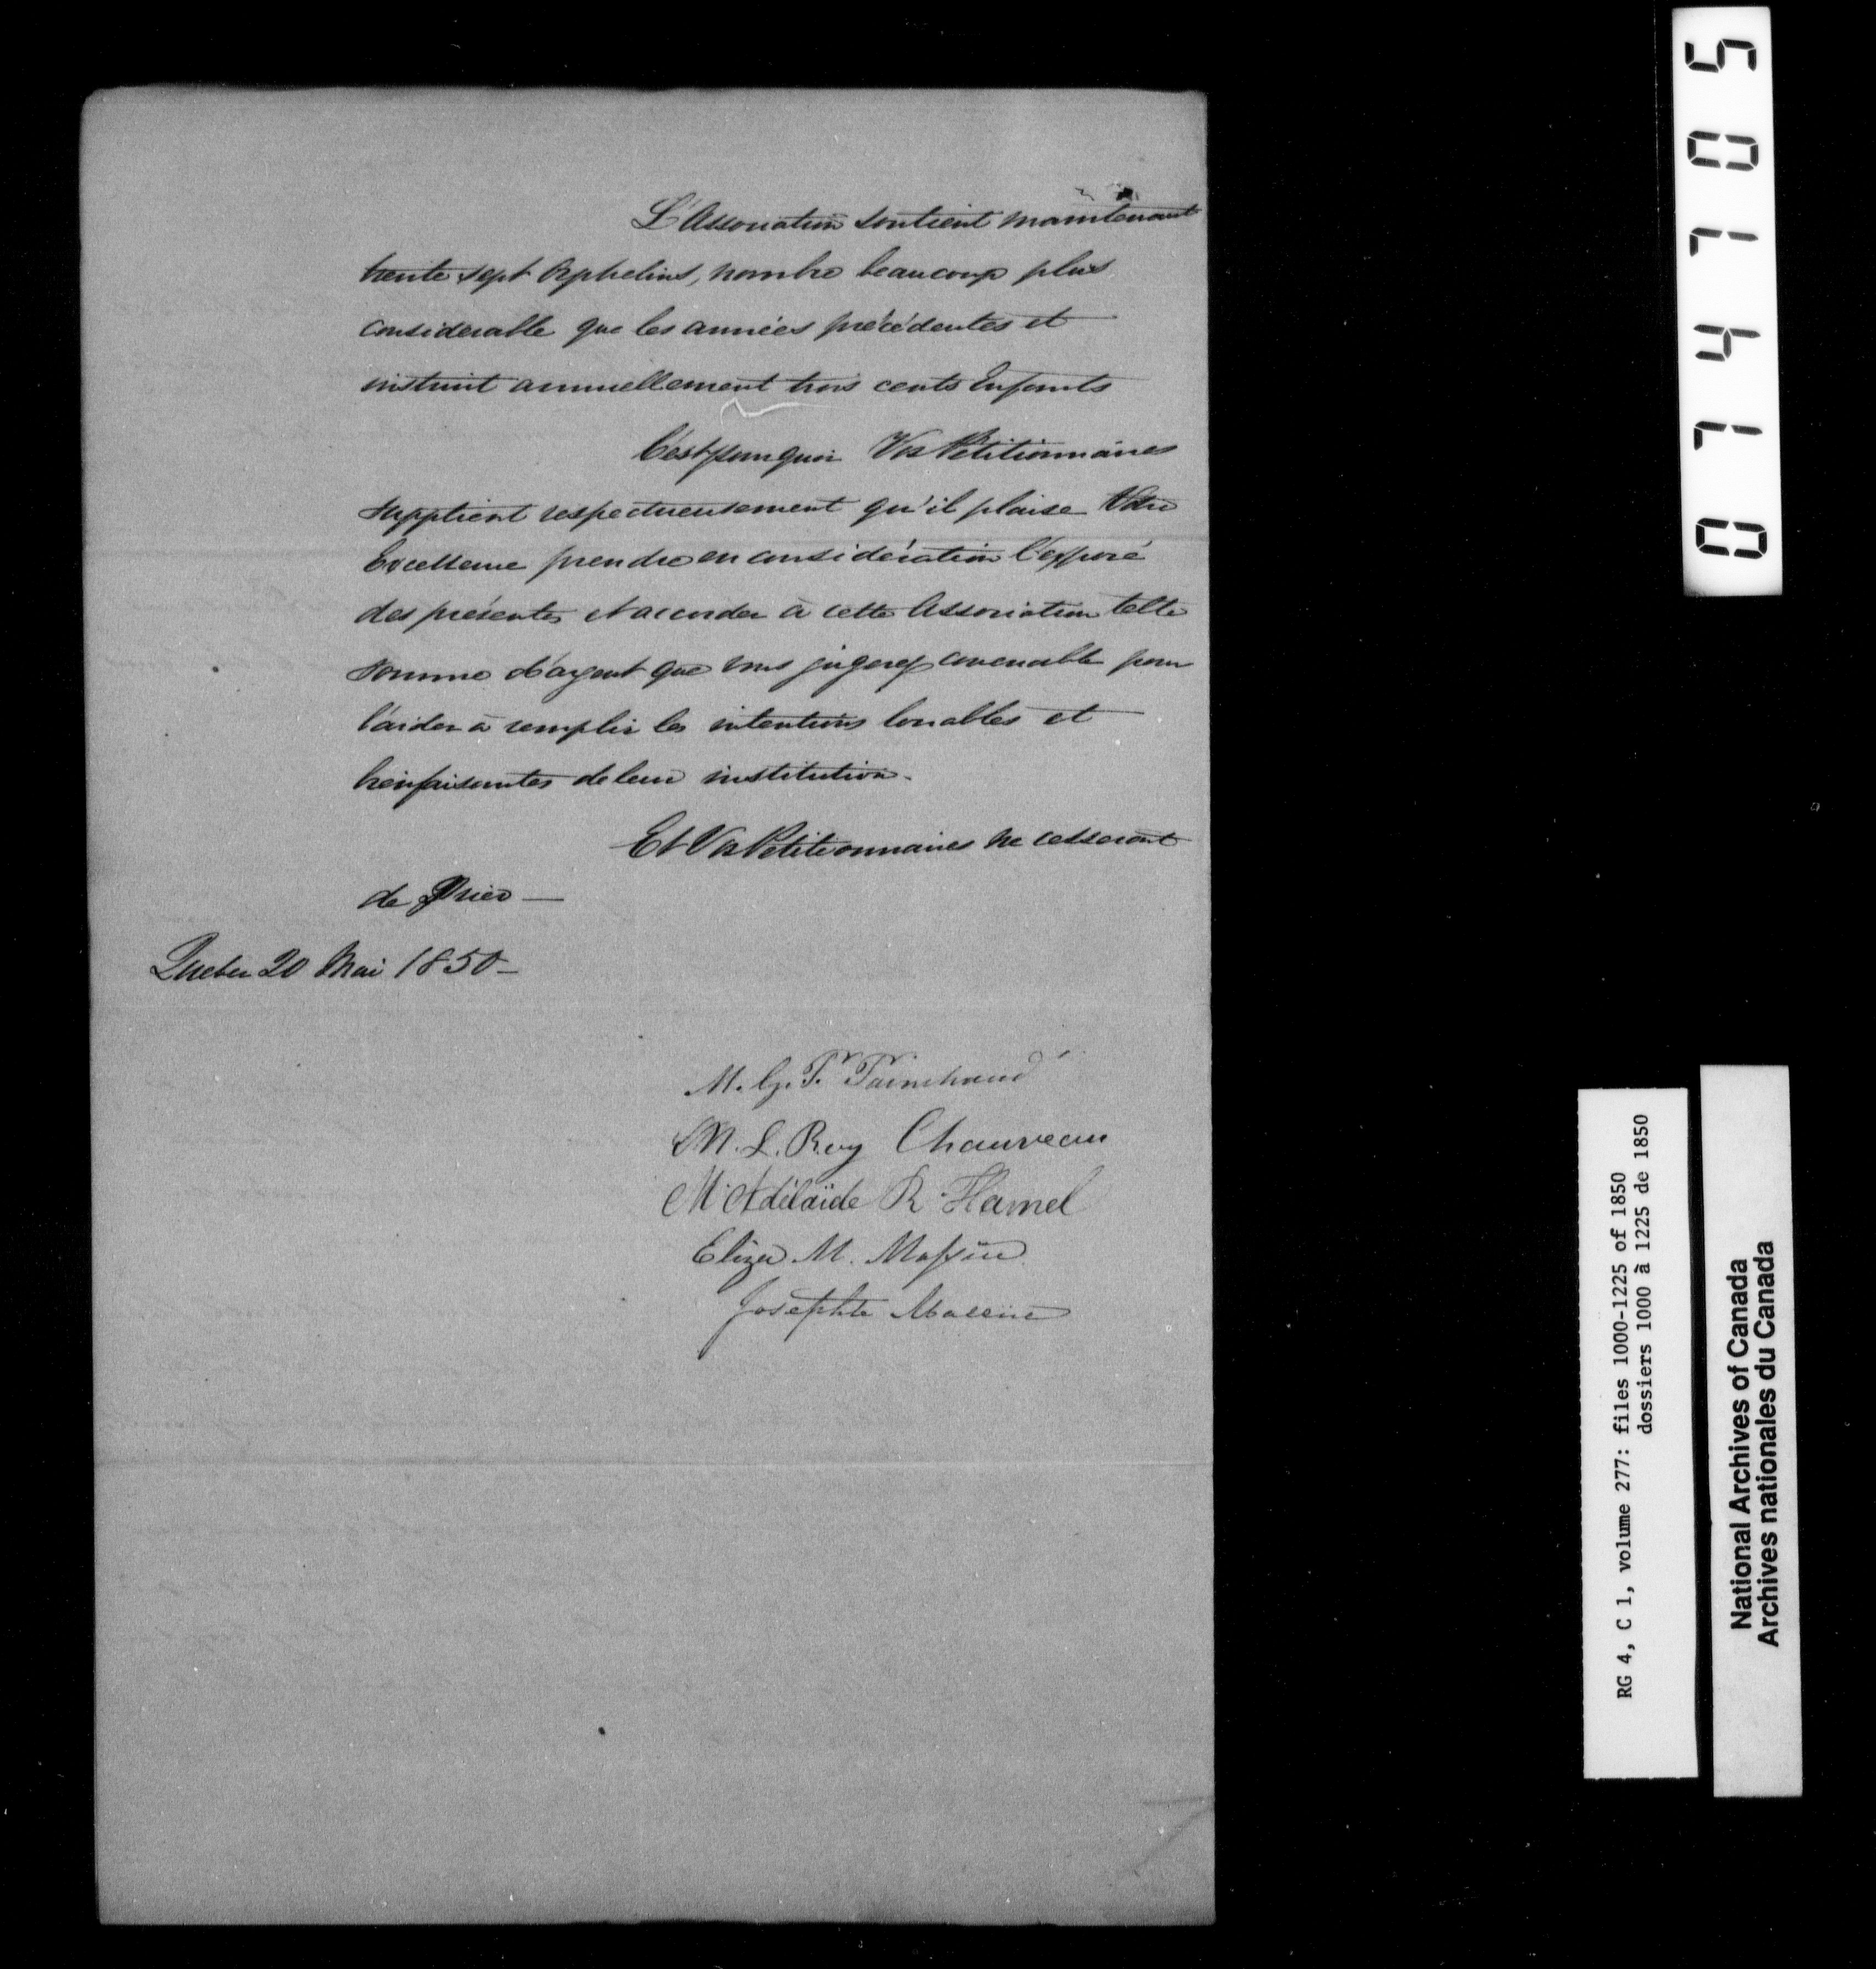 L'Association soutient maintenant
trente sept Orphelins, nombre beaucoup plus
considerable que les années précédentes et
instruit annuellement trois cents Enfants
C'est pourquoi Vos Pétitionnaires
supplient respectueusement qu'il plaise Votre
Excellence prendre en considération l'exposé
des présentes et accorder à cette Association telle
somme d'argent que vous jugerez convenable pour
l'aider à remplir les intentions louables et
bienfaisantes de leur institution.
Et Vos Petitionnaires ne cesseront
de Prier —
Quebec 20 Mai 1850 —
M. G. T. Painchaud
M. L. Roy Chauveau
M. Adélaïde R. Hamel
Eliza M. Massüe
Josephte
074705
RG 4, C 1, volume 277: files 1000-1225 of 1850
dossiers 1000 à 1225 de 1850
National Archives of Canada
Archives nationales du Canada